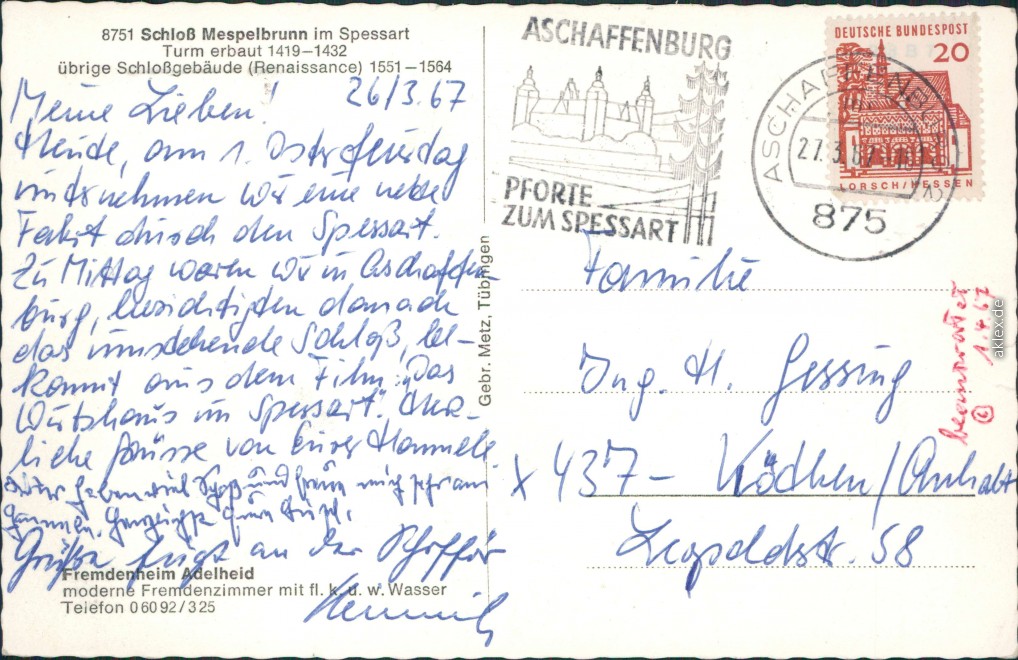 8751 Schloß Mespelbrunn im Spessart
Turm erbaut 1419–1432
übrige Schloßgebäude (Renaissance) 1551–1564
26/3.67
Meine Lieben!
Heute, am 1. Osterfeiertag
unternehmen wir eine nette
Fahrt durch den Spessart.
Zu Mittag waren wir in Aschaffen-
burg, besichtigten danach
das umstehende Schloß, be-
kannt aus dem Film: „Das
Wirtshaus im Spessart“. Herz-
liche Grüsse von Eurer Hannele
haben viel Spaß und
Grüße fügt an der Chaufför
Heinrich
Fremdenheim Adelheid
moderne Fremdenzimmer mit fl. k. u. w. Wasser
Telefon 0 60 92 / 325
Gebr. Metz, Tübingen
ASCHAFFENBURG
PFORTE
ZUM SPESSART
ASCHAFFENBURG
27.3.67
875
DEUTSCHE BUNDESPOST
20
LORSCH/HESSEN
Familie
Ing. H. Gessing
x 437 – Köthen/Anhalt
Leopoldstr. 58
beantwortet
1.4.67
aklex.de